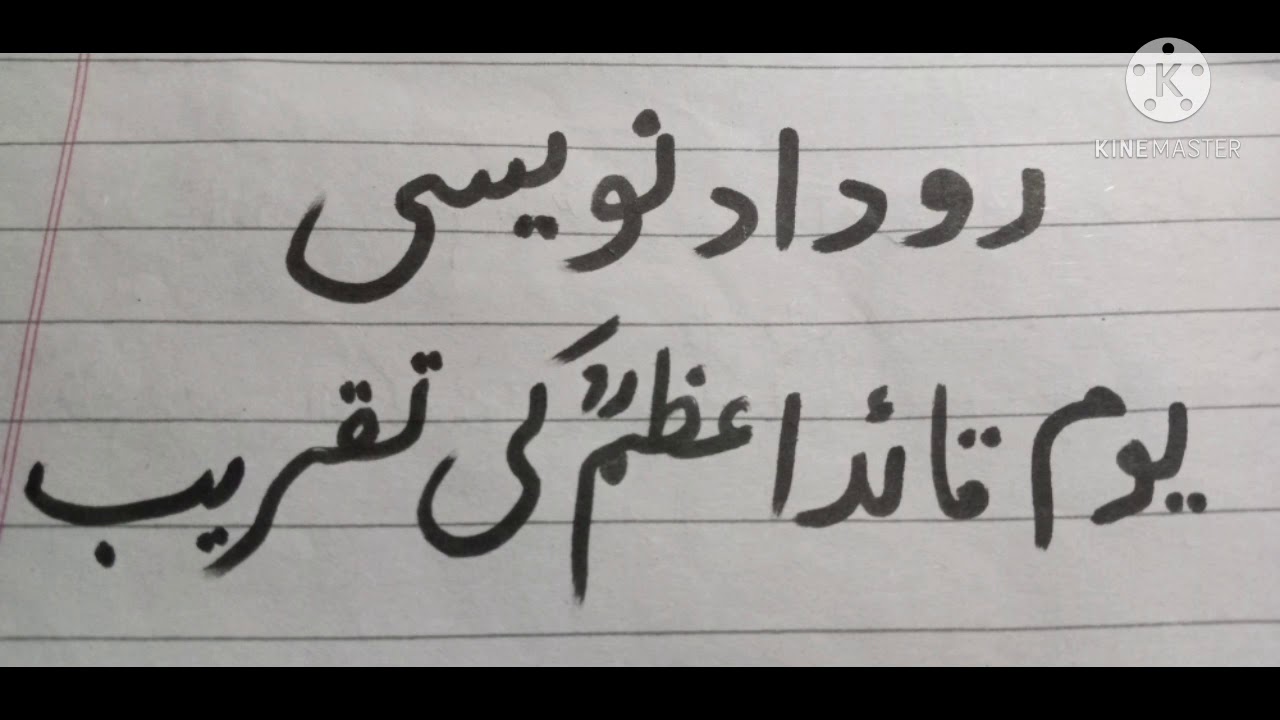 KINEMASTER
روداد نویسی
یوم قائداعظمؒ کی تقریب